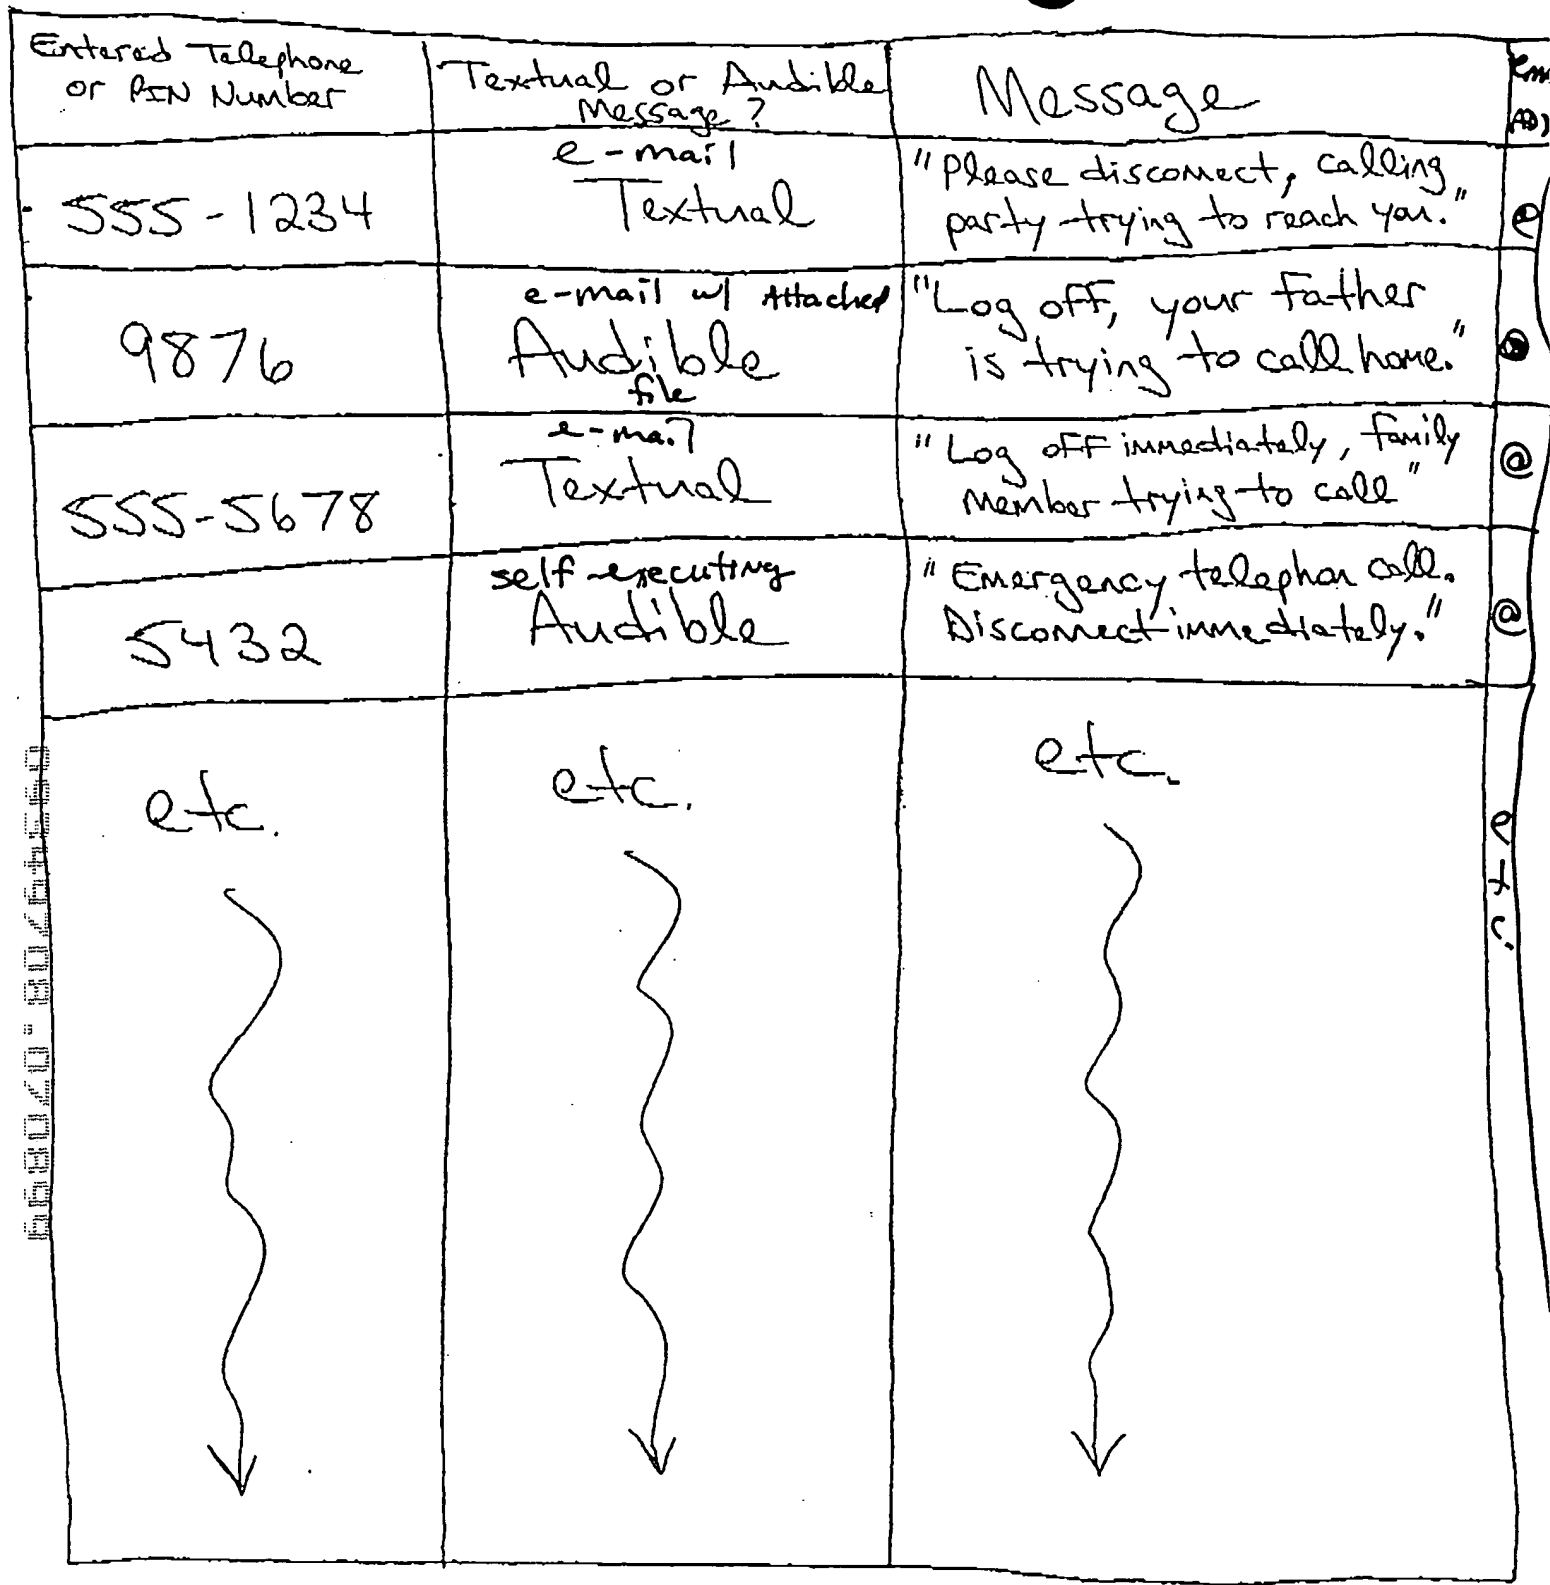 Entered Telephone
or PIN Number
Textual or Audible
Message?
Message
555-1234
e-mail
Textual
"Please disconnect, calling
party trying to reach you."
@
9876
e-mail w/ Attached
Audible
file
"Log off, your father
is trying to call home."
@
555-5678
e-mail
Textual
"Log off immediately, family
member trying to call"
@
5432
self-executing
Audible
"Emergency telephon call.
Disconnect immediately."
@
etc.
etc.
etc.
etc.